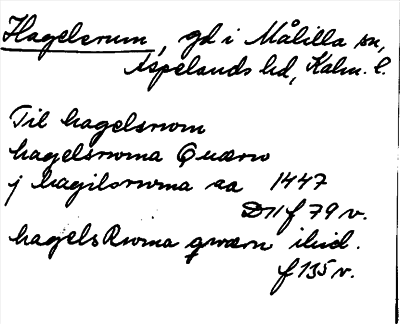 Hagelsrum, gd i Målilla sn,
Aspelands hd, Kalm. l.
Til hagelsrwm
hagelsrwma Quærn
j hagilsrwma aa 1447
D11 f 79 v.
hagelsRwma qwærn ibid.
f 135 v.